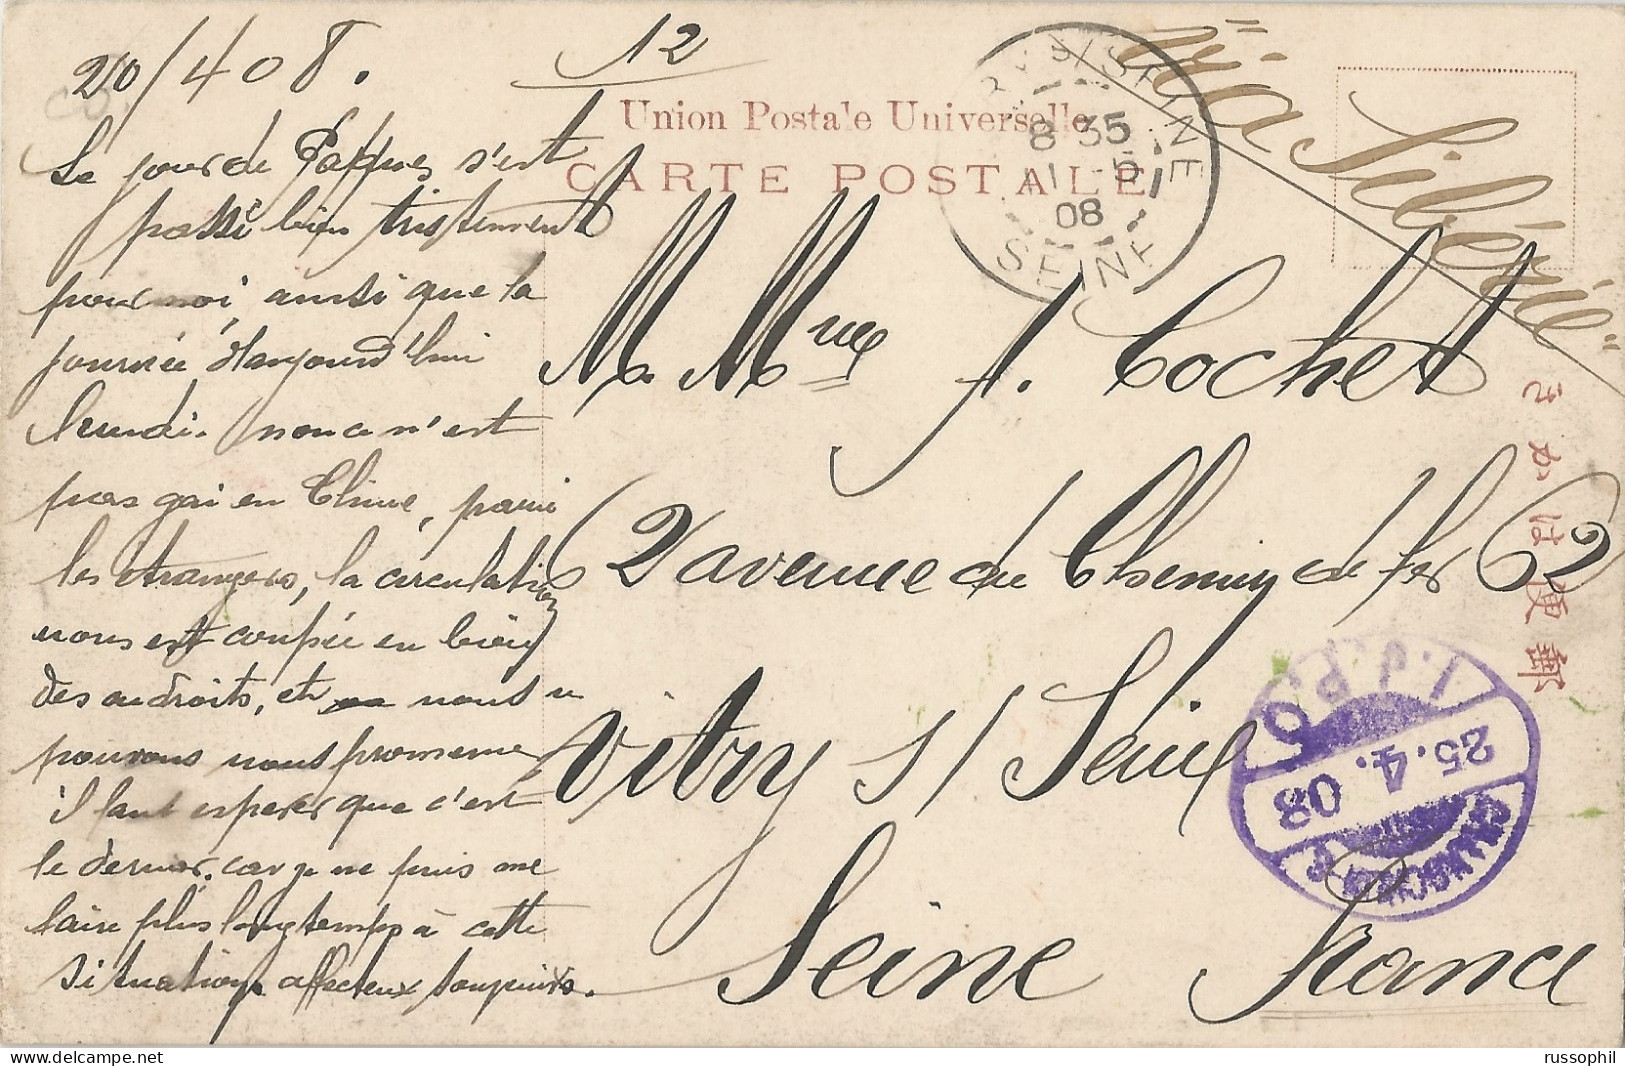 20/4 08.
12
Le jour de Pâques s'est
passé bien tristement
pour moi, ainsi que la
journée d'aujourd'hui
lundi. non ce n'est
pas gai en Chine, parmi
les étrangers, la circulation
nous est coupée en bien
des endroits, et nous n
pouvons nous promener
il faut espérer que c'est
le dernier. car je ne puis me
faire plus longtemps à cette
situation. affectueux
Union Postale Universelle
CARTE POSTALE
"Via Sibérie"
M. Mme J. Cochet
2 avenue du Chemin de fer 62
Vitry s/ Seine
Seine France
SEINE
8 35
1 5
08
SEINE
きかは便郵
I.J.P.O
25.4.08
SHANGHAI
russophil